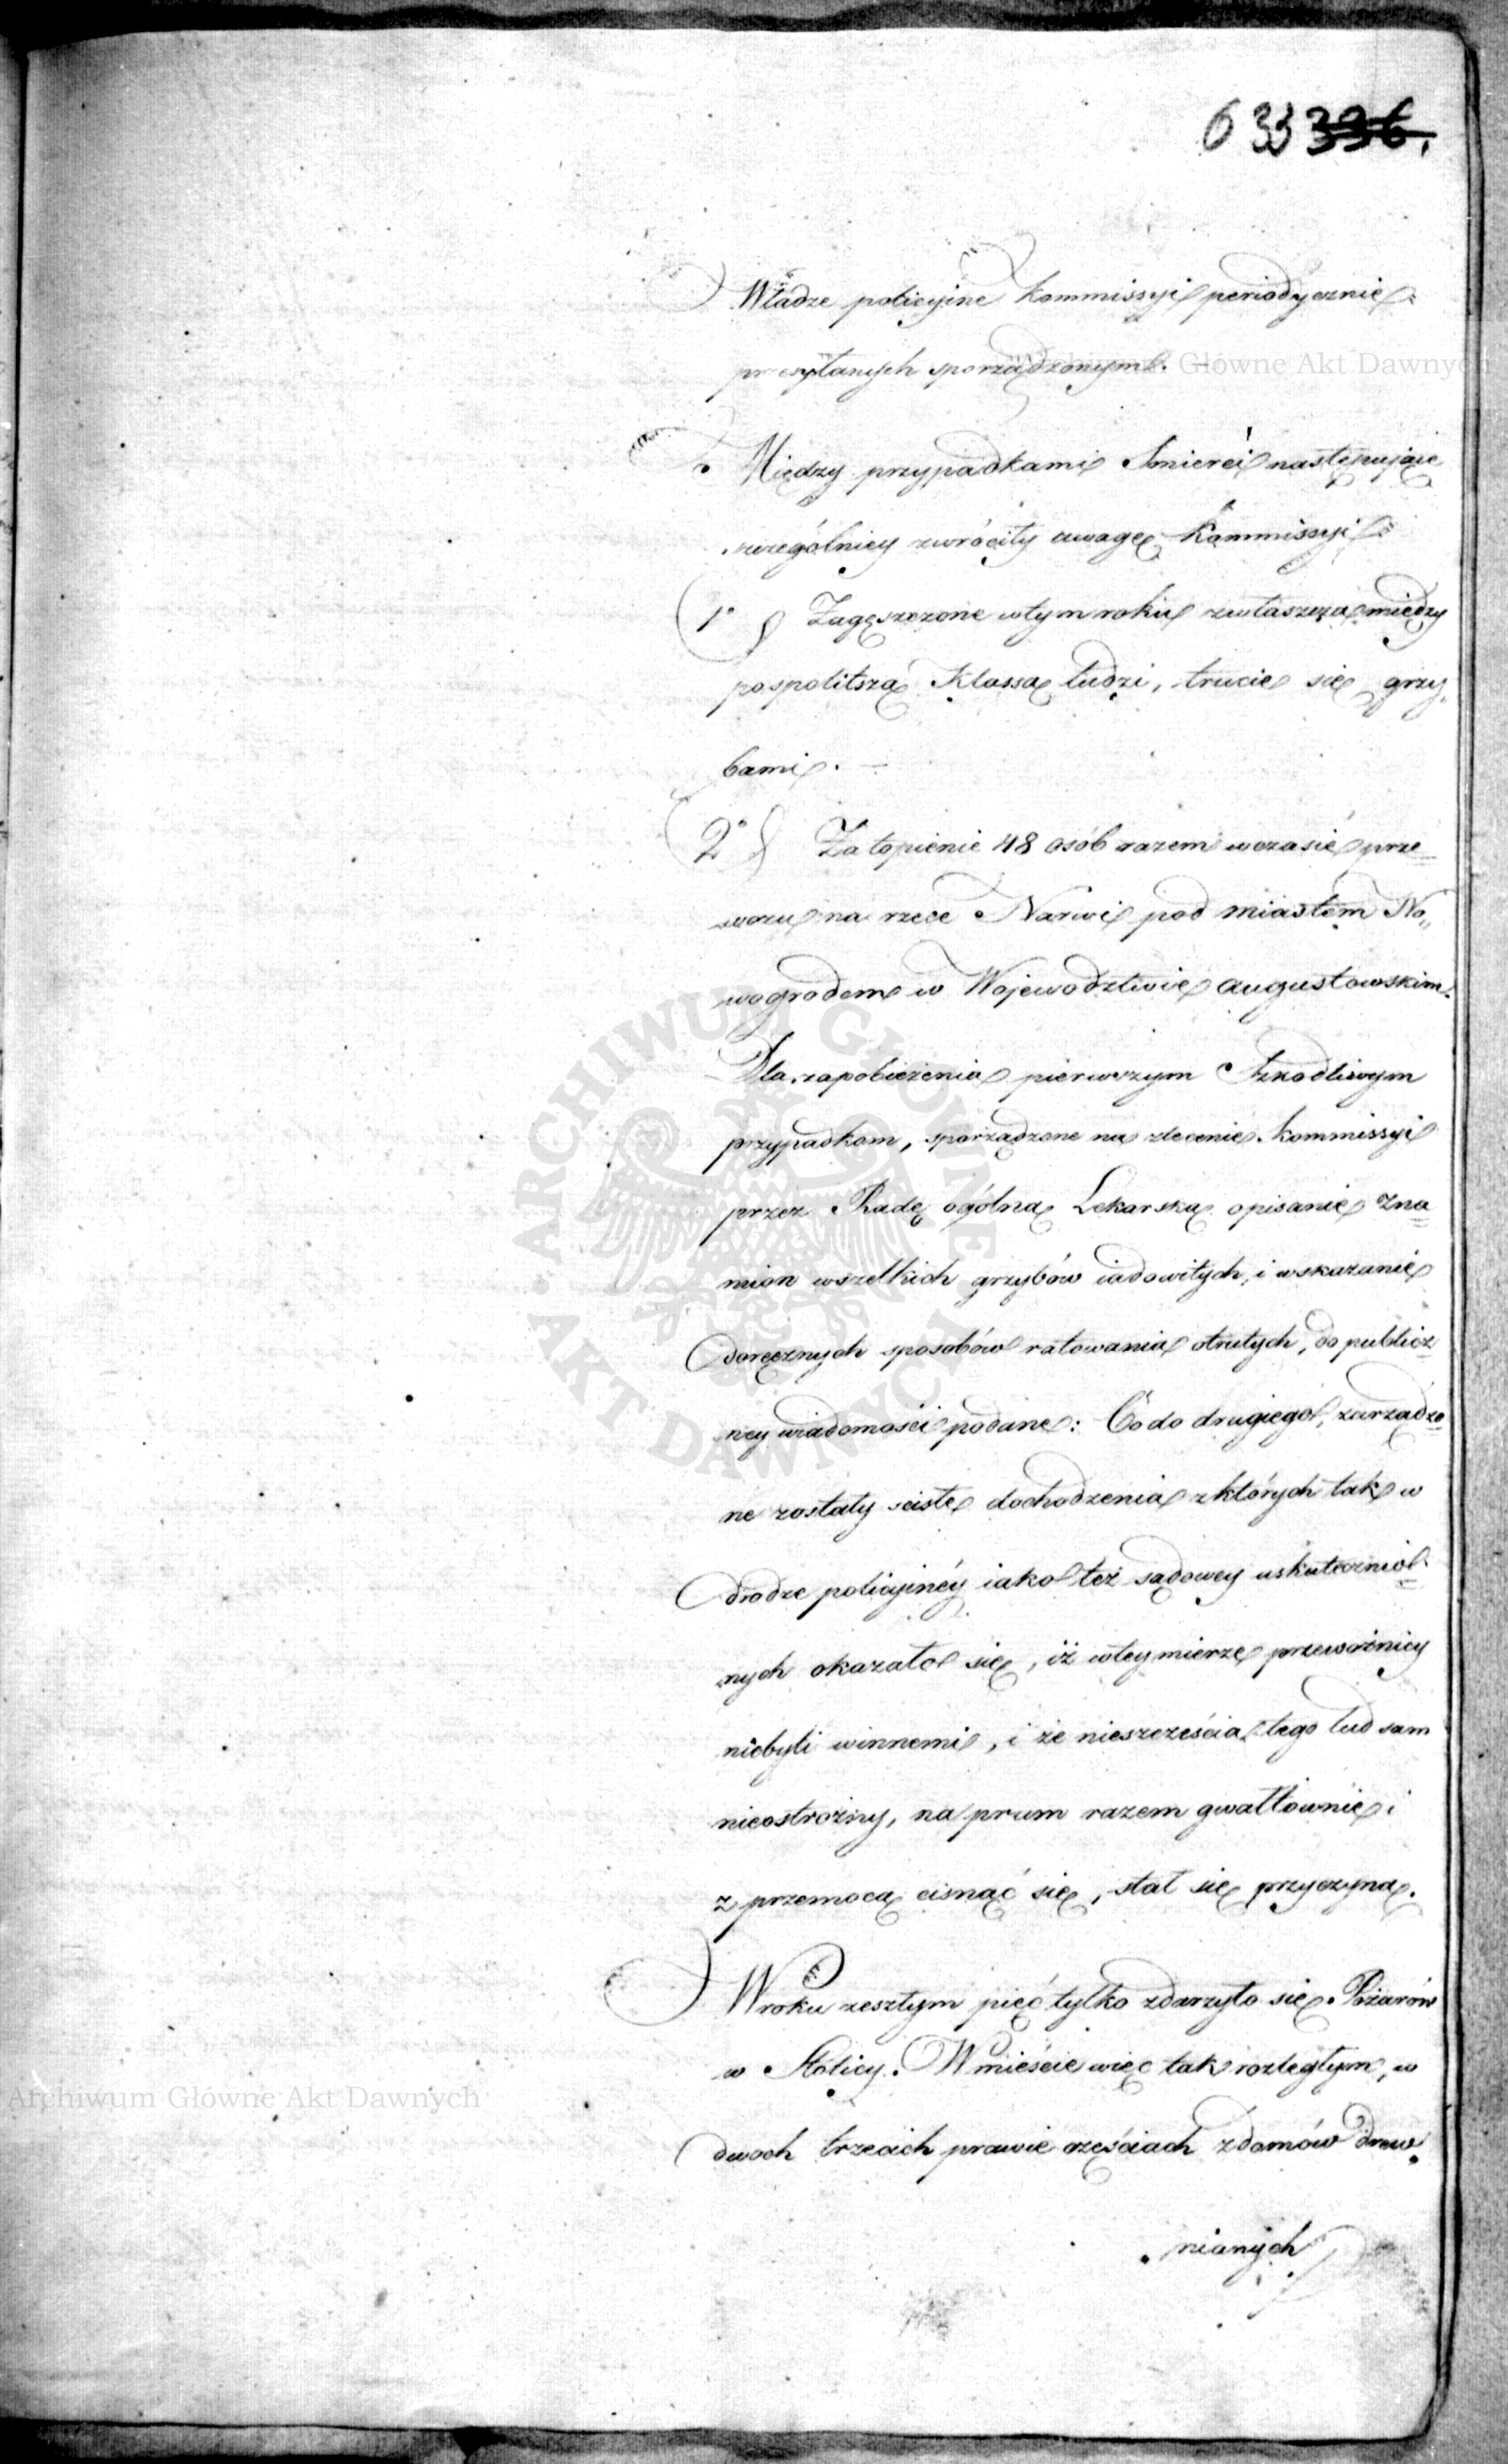 633 336.
Władze policyjne Kommissyi periodycznie
przesyłanych sporządzonym. —
Archiwum Główne Akt Dawnych
Między przypadkami Smierci następujące
szczególniey zwróciły uwagę Kommissyi
1° Zagęszczone wtym roku zwłaszcza między
pospolitszą Klassą ludzi, trucie się grzy„
bami. —
2° Zatopienie 48 osób razem wczasie prze=
wozu na rzece Narwi pod miastem No„
wogrodem w Województwie augustowskim.
Dla zapobieżenia pierwszym Szkodliwym
przypadkom, sporządzone na zlecenie Kommissyi
przez Radę ogólną Lekarską opisanie zna=
mion wszelkich grzybów iadowitych, i wskazanie
doręcznych sposobów ratowania otrutych, do publicz=
ney wiadomości podane: Co do drugiego, zarządzo=
ne zostały scisłe dochodzenia z których tak w
drodze policyinéy iako też sądowey uskutecznio=
nych okazało się, iż wtey mierze przewoźnicy
niebyli winnemi, i że nieszczęścia tego lud sam
nieostrożny, na prum razem gwałtownie i
z przemocą cisnąć się, stał się przyczyną.
W roku zeszłym pięć tylko zdarzyło się Pożarów
w Stolicy. W mieście więc tak rozległym, w
Archiwum Główne Akt Dawnych
dwoch trzecich prawie częściach z domów drew„
nianych
ARCHIWUM GŁÓWNE
AKT DAWNYCH